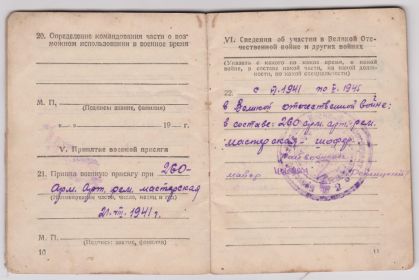 20. Определение командования части о воз-
можном использовании в военное время
М. П.
(Подпись: звание, фамилия)
19 г.
V. Принятие военной присяги
21. Принял военную присягу при 260-
Арм. Арт. рем. мастерская
21. VII. 1941 г.
М. П.
(Подпись: звание, фамилия)
10
VI. Сведения об участии в Великой Оте-
чественной войне и других войнах
(Указать с какого по какое время, в какой
войне, в составе какой части, на какой долж-
ности, по какой специальности)
22. с 1941 по V. 1945
в Великой отечественной войне;
в составе: 260 арм. арт. рем.
мастерская - шофер.
майор
11